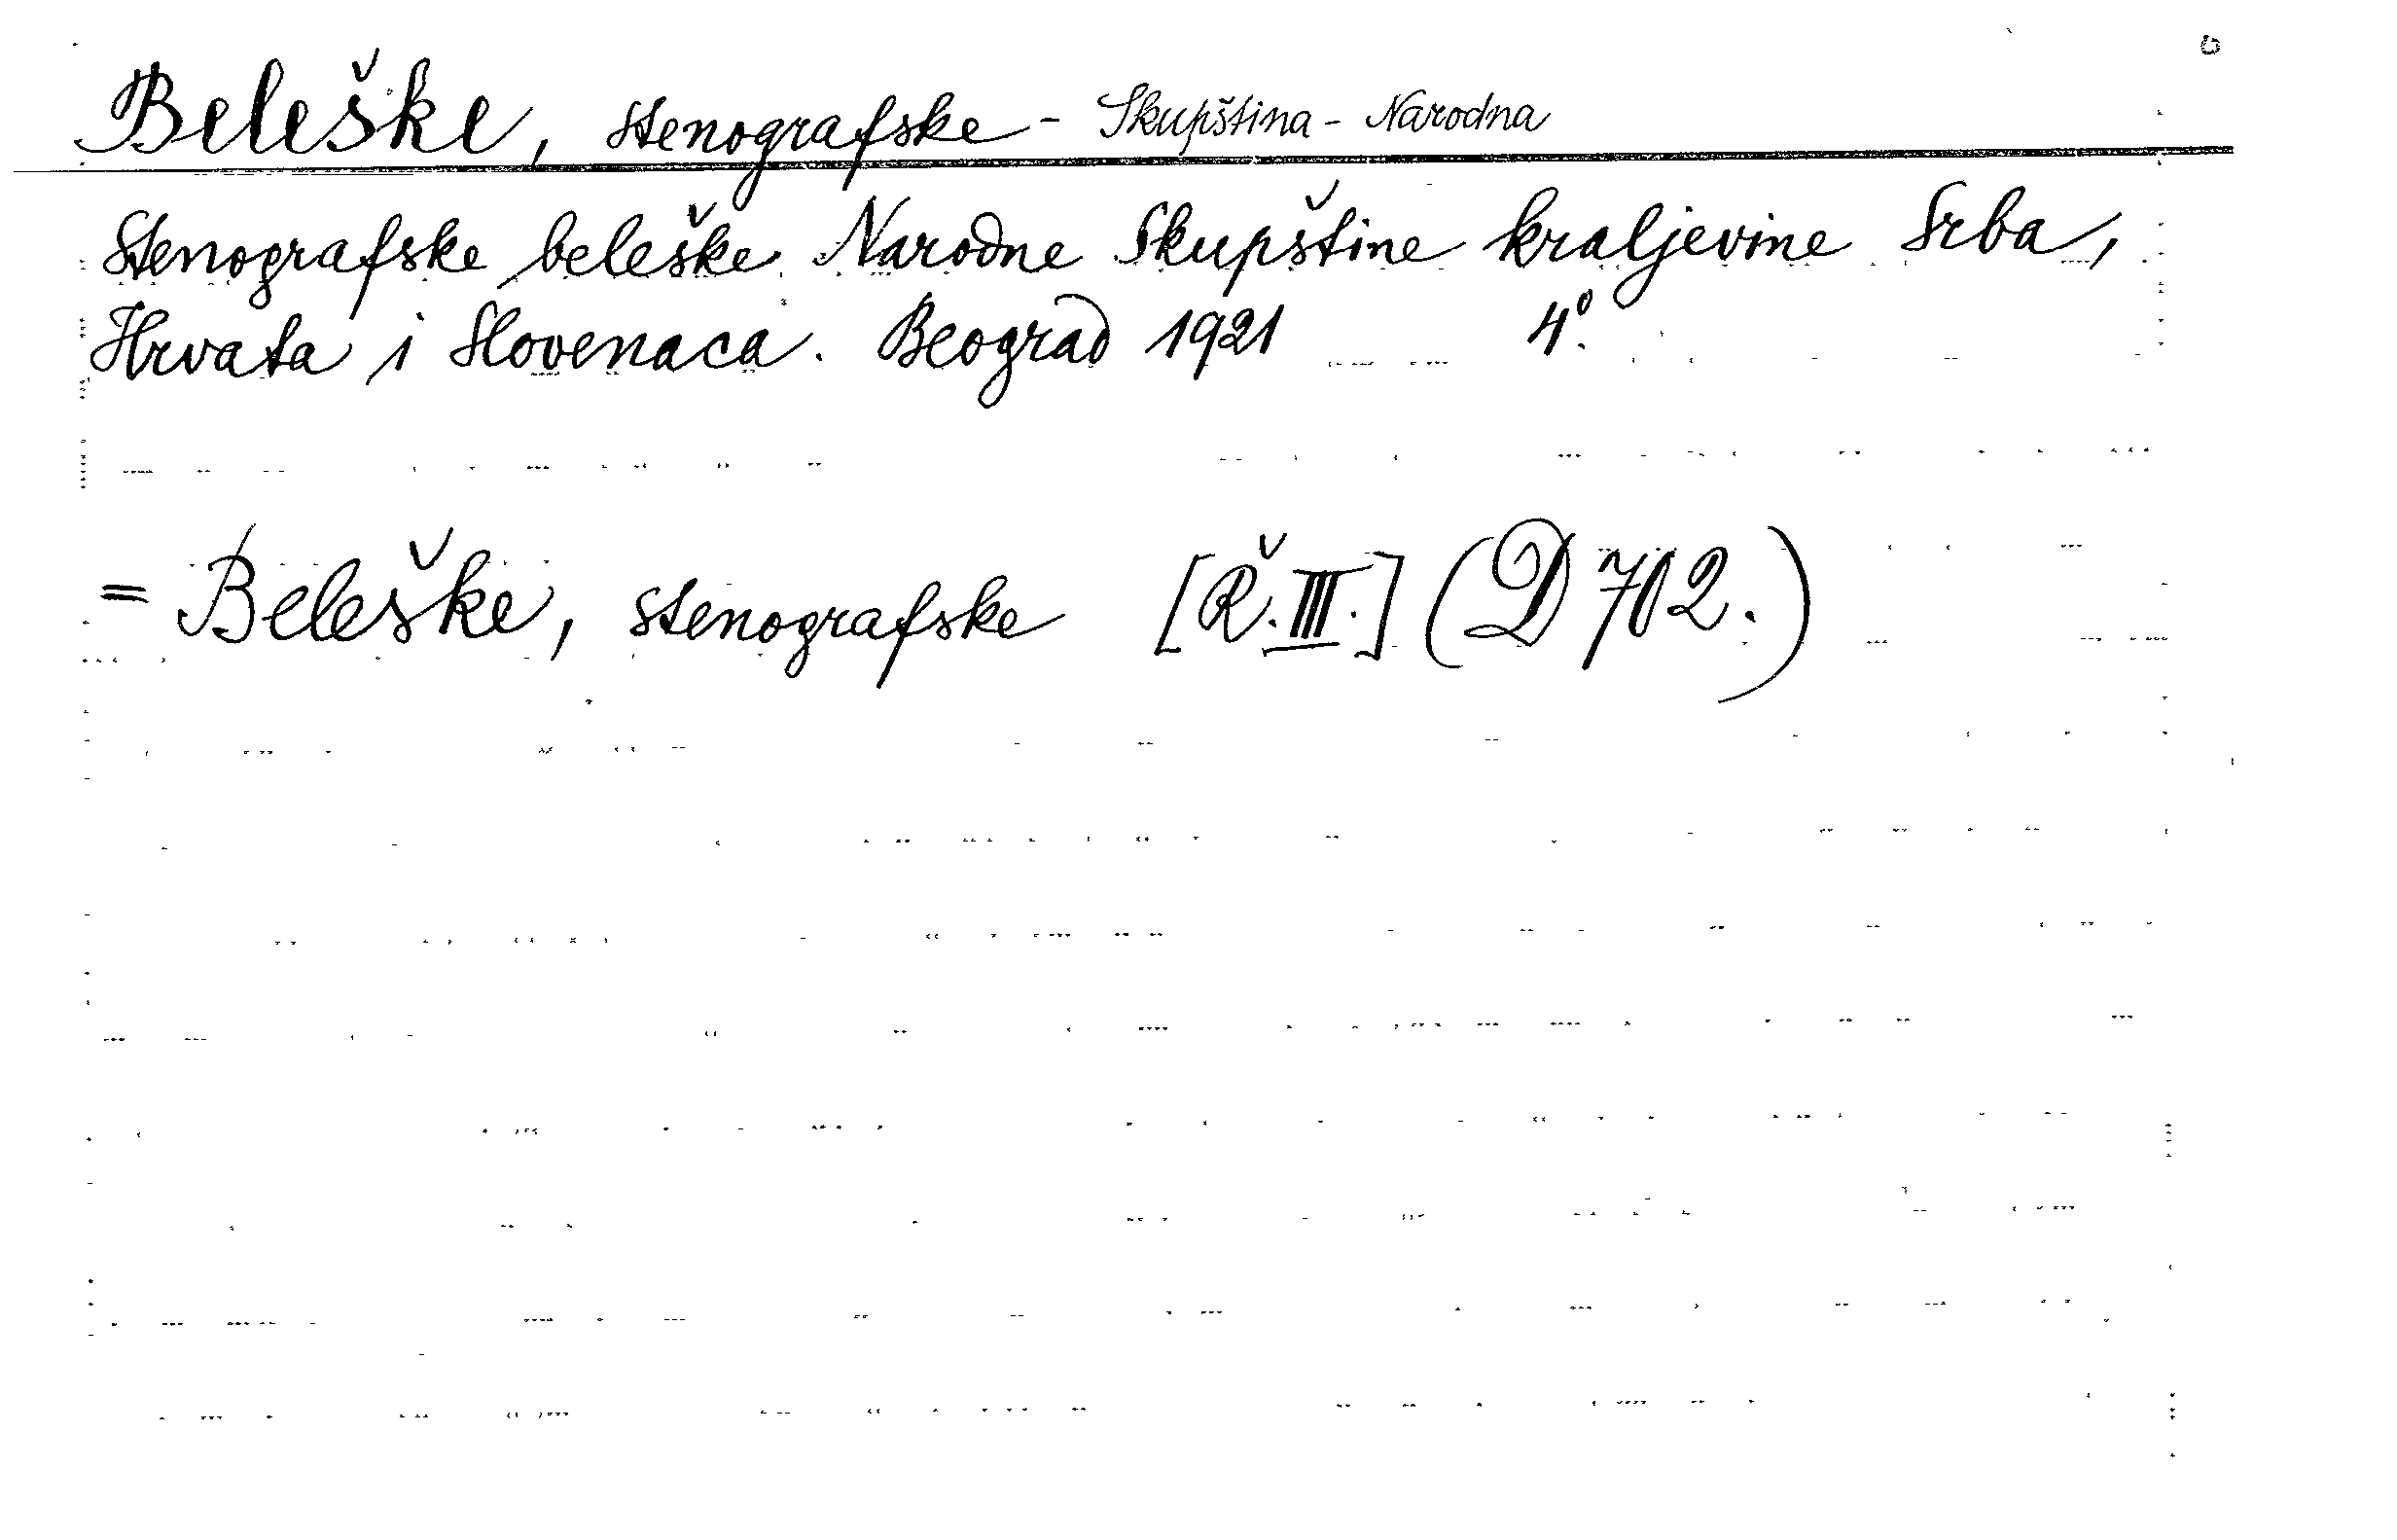 Beleške, stenografske - Skupština - Narodna
Stenografske beleške Narodne Skupštine kraljevine Srba,
Hrvata i Slovenaca. Beograd 1921 4°.
= Beleške, stenografske [Ř. III.] (D 702.)